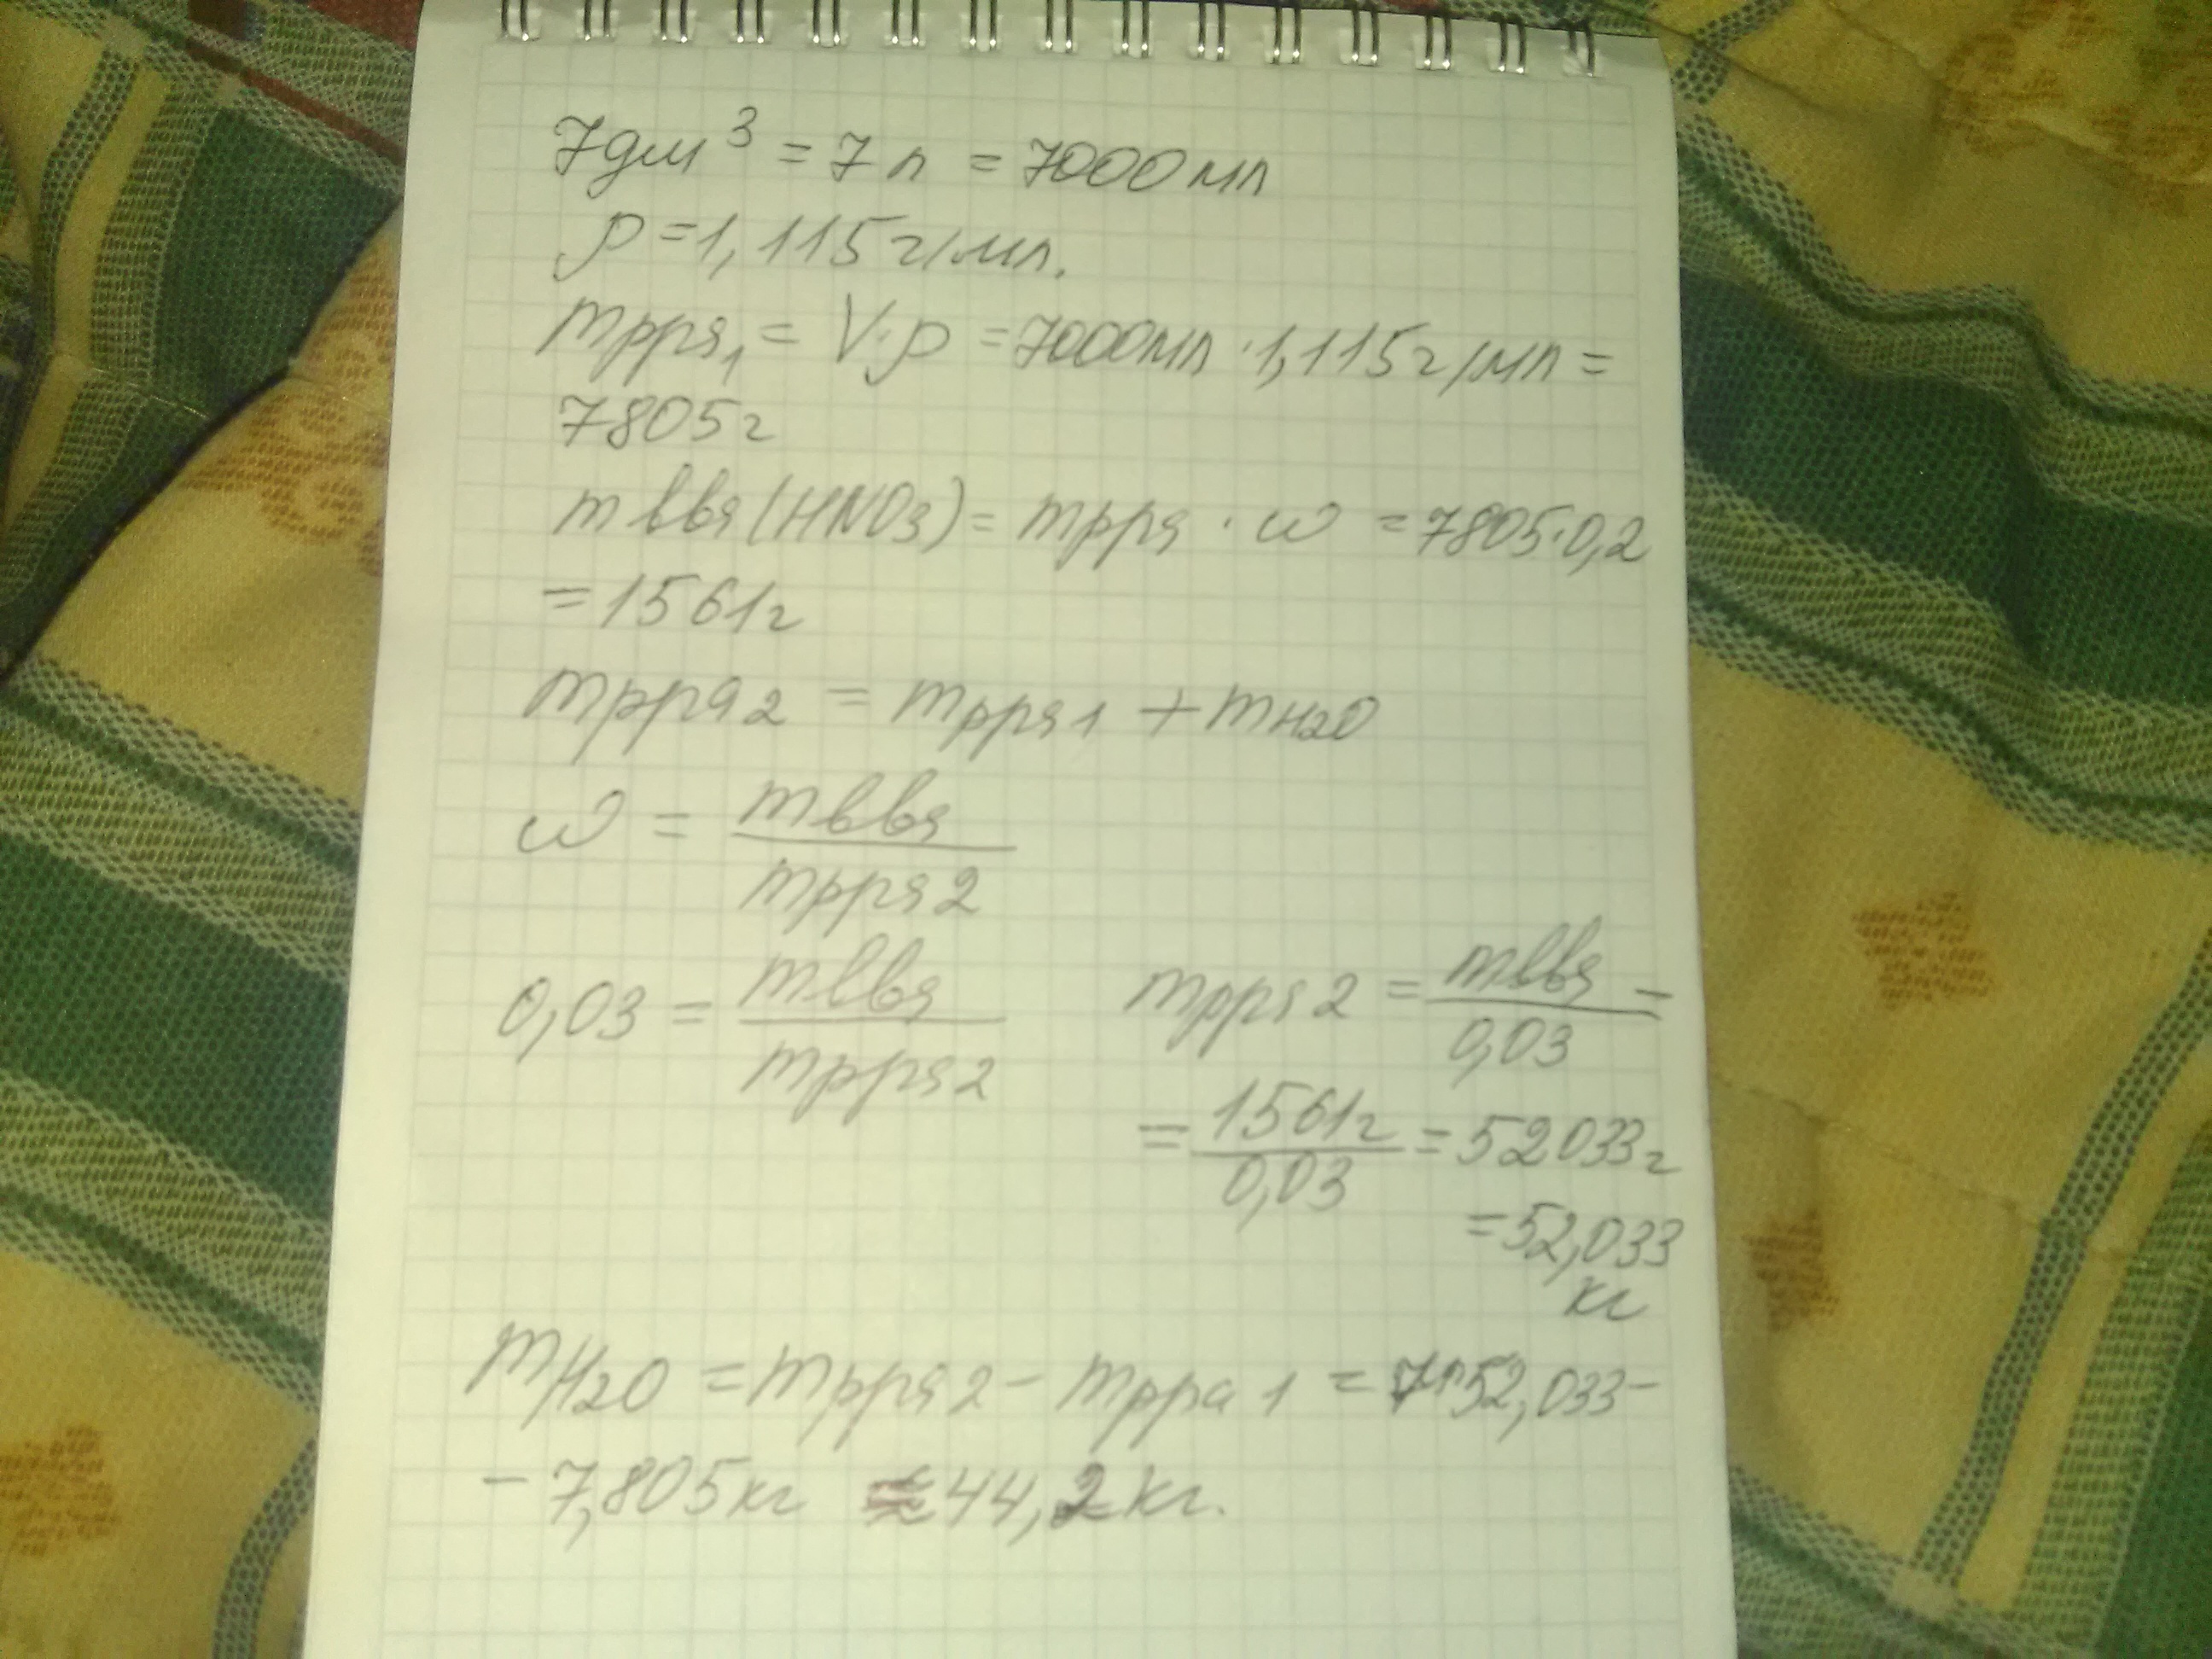 7дм³ = 7 л = 7000 мл
ρ = 1,115 г/мл.
mрря₁ = V·ρ = 7000мл · 1,115 г/мл =
7805 г
m вва (HNO₃) = mрря · ω = 7805·0,2
= 1561 г
mрря 2 = mрря 1 + mH₂O
ω = mвва / mрря 2
0,03 = mвва / mрря 2
mрря 2 = mвва / 0,03 =
= 1561г / 0,03 = 52033 г
= 52,033
кг
mH₂O = mрря 2 - mррa 1 = 52,033 -
- 7,805 кг ≈ 44,2 кг.